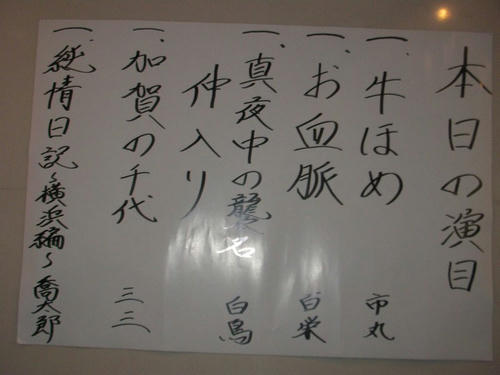 本日の演目
一、牛ほめ 市丸
一、お血脈 白栄
一、真夜中の襲名 白鳥
仲入り
一、加賀の千代 三三
一、純情日記〜横浜編〜喬太郎